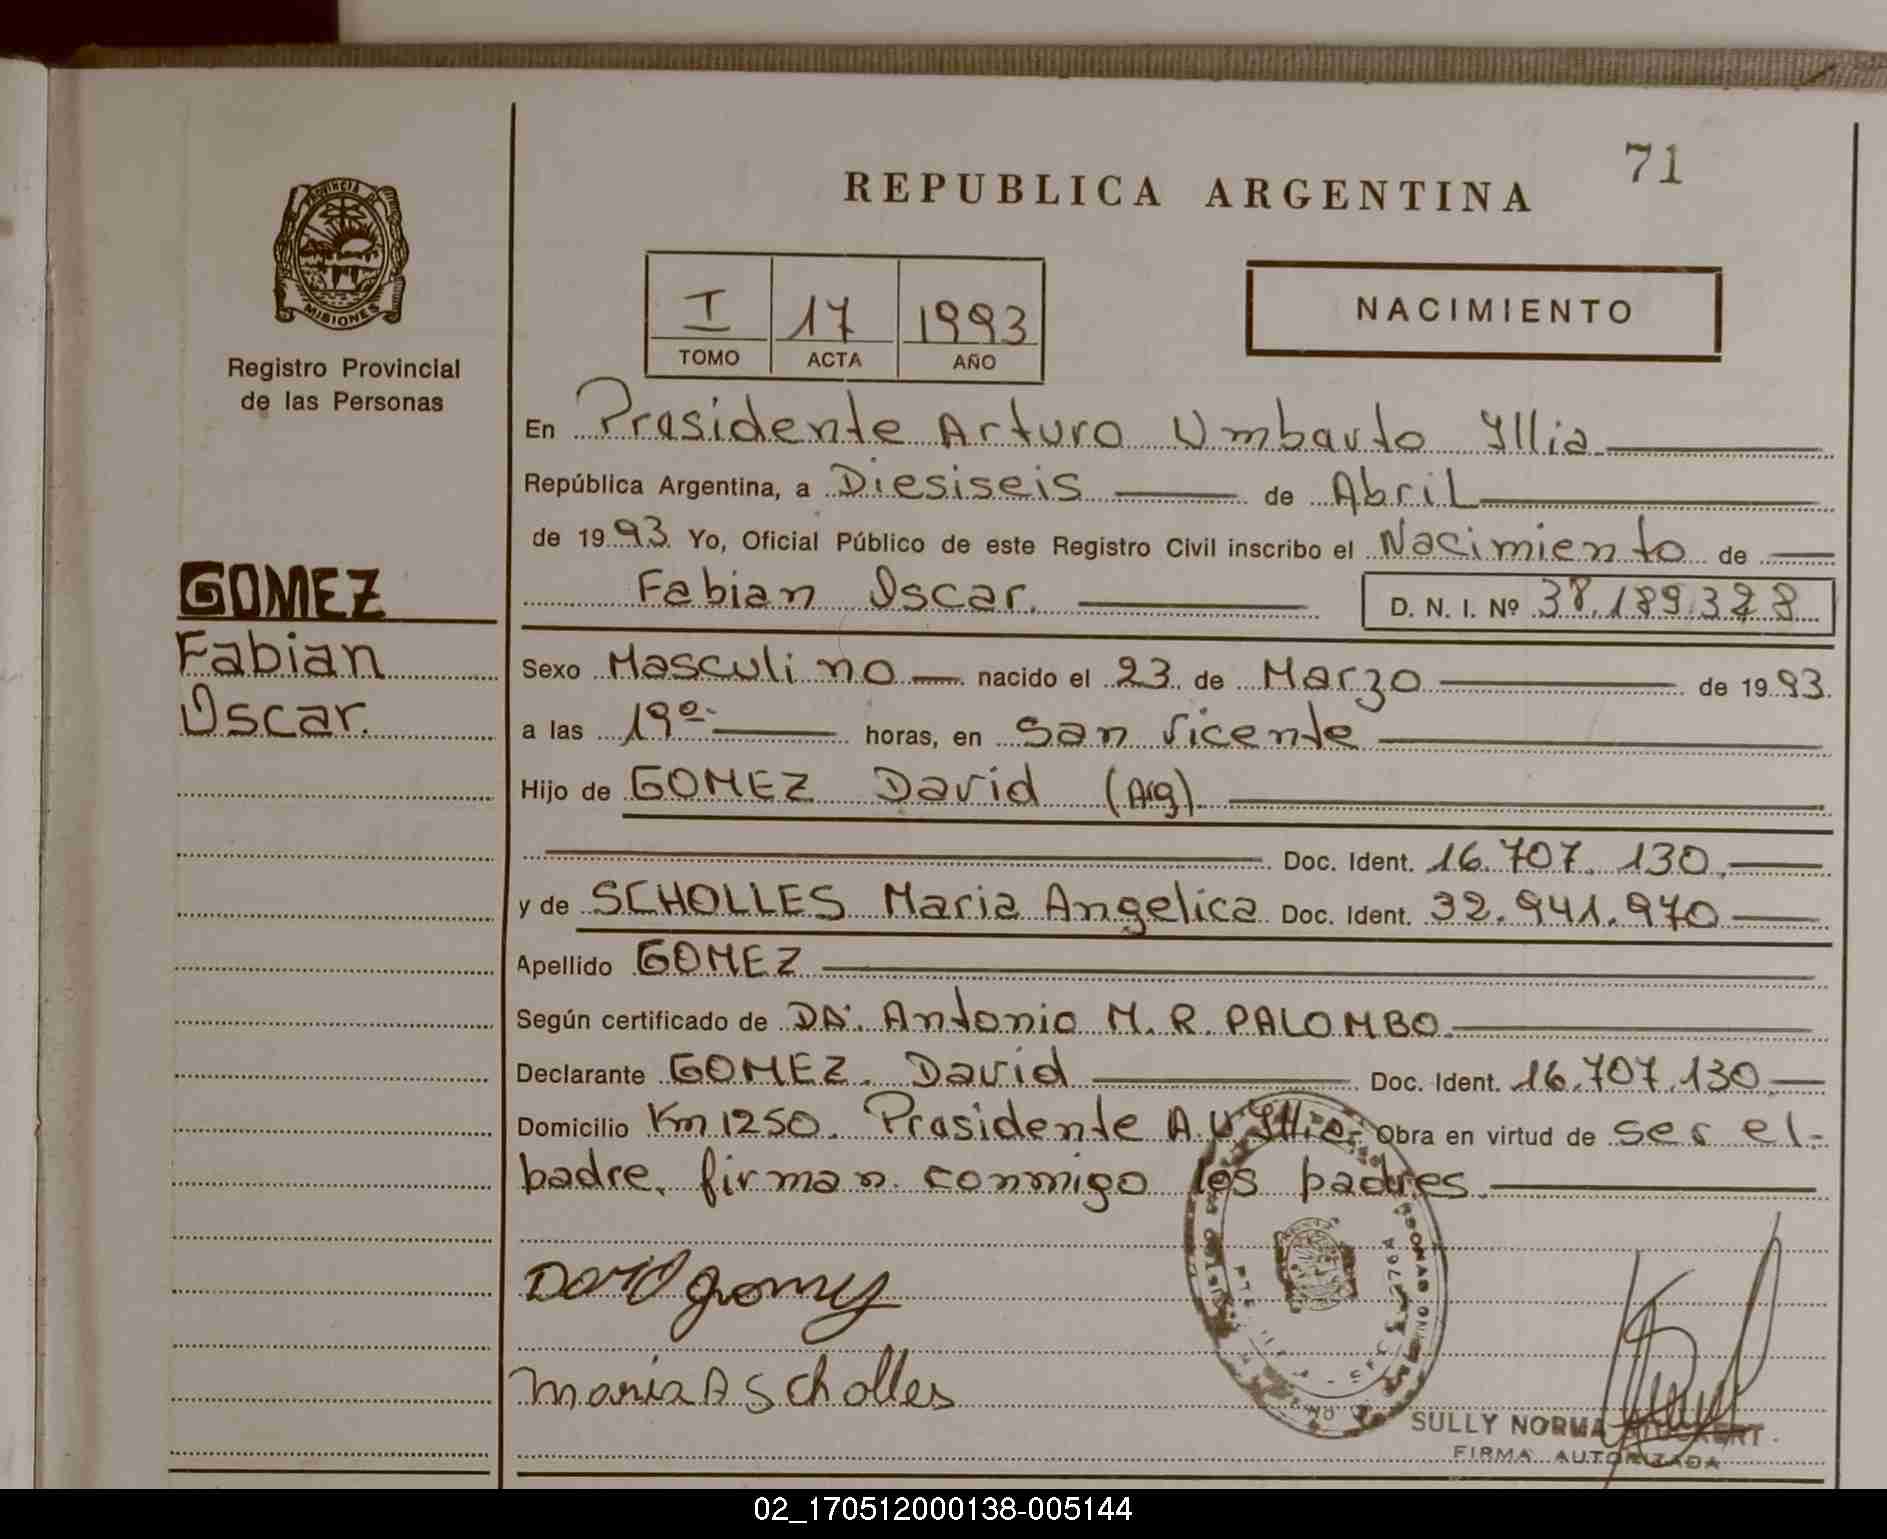 71
REPUBLICA ARGENTINA
PROVINCIA DE
MISIONES
Registro Provincial
de las Personas
I 17 1993
TOMO ACTA AÑO
NACIMIENTO
En Presidente Arturo Umberto Yllia
República Argentina, a Diesiseis de Abril
de 1993 Yo, Oficial Público de este Registro Civil inscribo el Nacimiento de
Fabian Oscar. D. N. I. Nº 38.189.328
GOMEZ
Fabian
Oscar.
Sexo Masculino nacido el 23 de Marzo de 1993.
a las 19º horas, en San Vicente
Hijo de GOMEZ David (Arg)
Doc. Ident. 16.707.130.
y de SCHOLLES Maria Angelica Doc. Ident. 32.941.970
Apellido GOMEZ
Según certificado de DR. Antonio M. R. PALOMBO
Declarante GOMEZ. David Doc. Ident. 16.707.130
Domicilio Km 1250. Presidente A. U Yllia. Obra en virtud de ser el
padre. firman conmigo los padres.
David Gomez
Maria A Scholles
SULLY NORMA
FIRMA AUTORIZADA
02_170512000138-005144